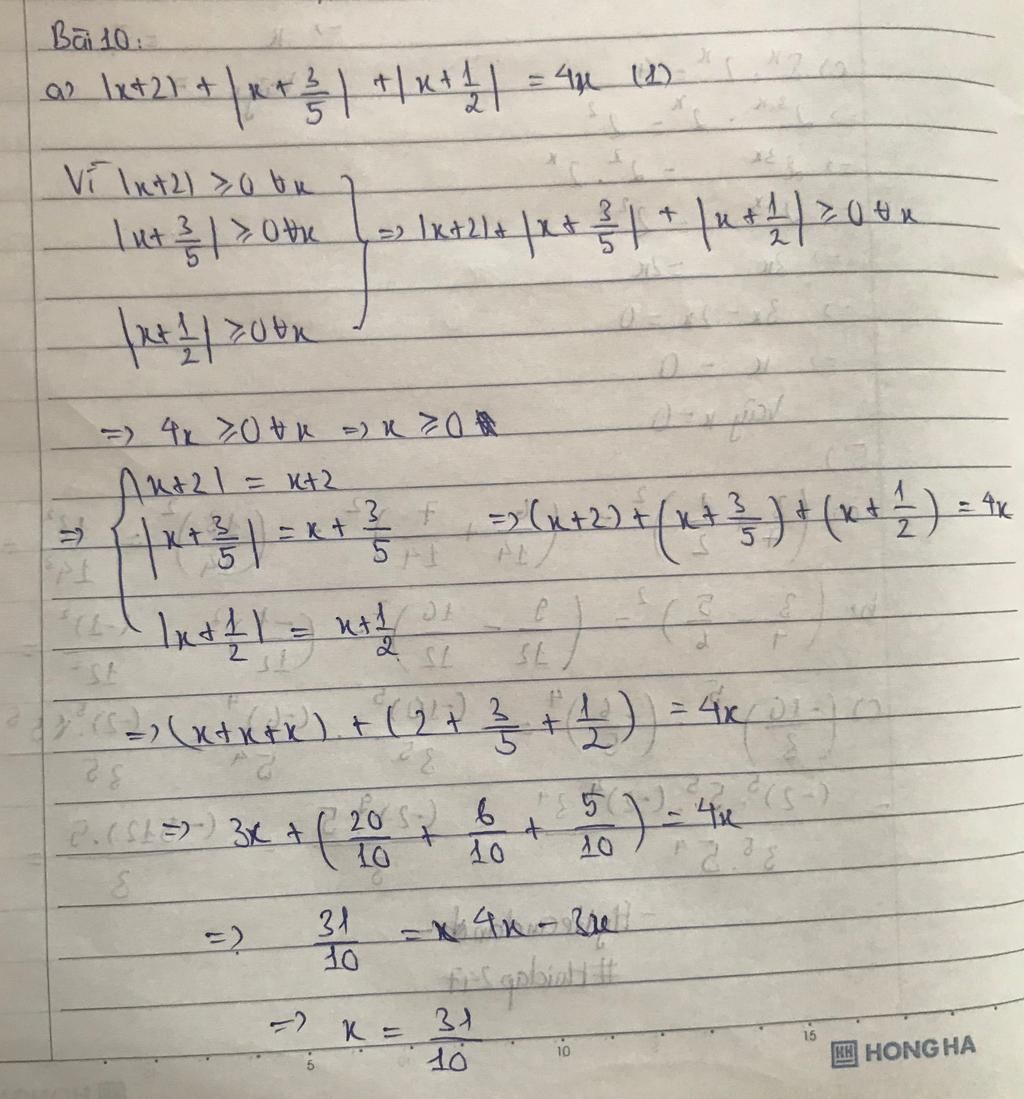 Bài 10:
a) |x+2| + |x + 3/5| + |x + 1/2| = 4x (1)
Vì |x+2| ≥ 0 ∀x
|x + 3/5| ≥ 0 ∀x => |x+2| + |x + 3/5| + |x + 1/2| ≥ 0 ∀x
|x + 1/2| ≥ 0 ∀x
=> 4x ≥ 0 ∀x => x ≥ 0
|x+2| = x+2
=> |x + 3/5| = x + 3/5 => (x+2) + (x + 3/5) + (x + 1/2) = 4x
|x + 1/2| = x + 1/2
=> (x+x+x) + (2 + 3/5 + 1/2) = 4x
=> 3x + (20/10 + 6/10 + 5/10) = 4x
=> 31/10 = x 4x - 3x
=> x = 31/10
5 10 15
HH HONG HA